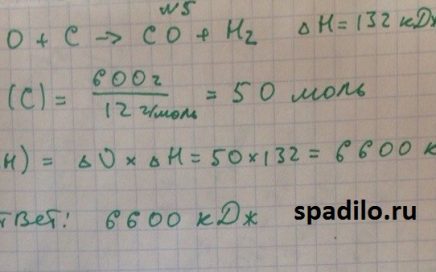 №5
O + C → CO + H₂ ΔH = 132 кДж
(C) = 600г / 12 г/моль = 50 моль
H) = Δυ × ΔH = 50 × 132 = 6600 к
твет: 6600 кДж
spadilo.ru